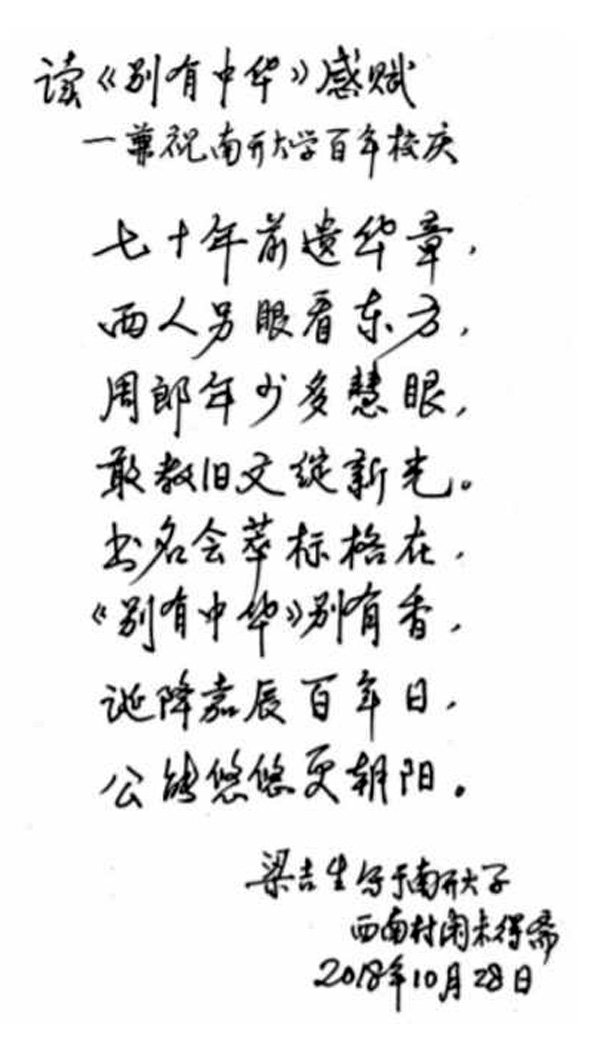 读《别有中华》感赋
一兼祝南开大学百年校庆
七十年前遗华章，
西人另眼看东方，
周郎年少多慧眼，
敢教旧文绽新光。
书名会萃标格在，
《别有中华》别有香，
诞降嘉辰百年日，
公能悠悠更朝阳。
梁吉生写于南开大学
西南村闲未得斋
2018年10月28日